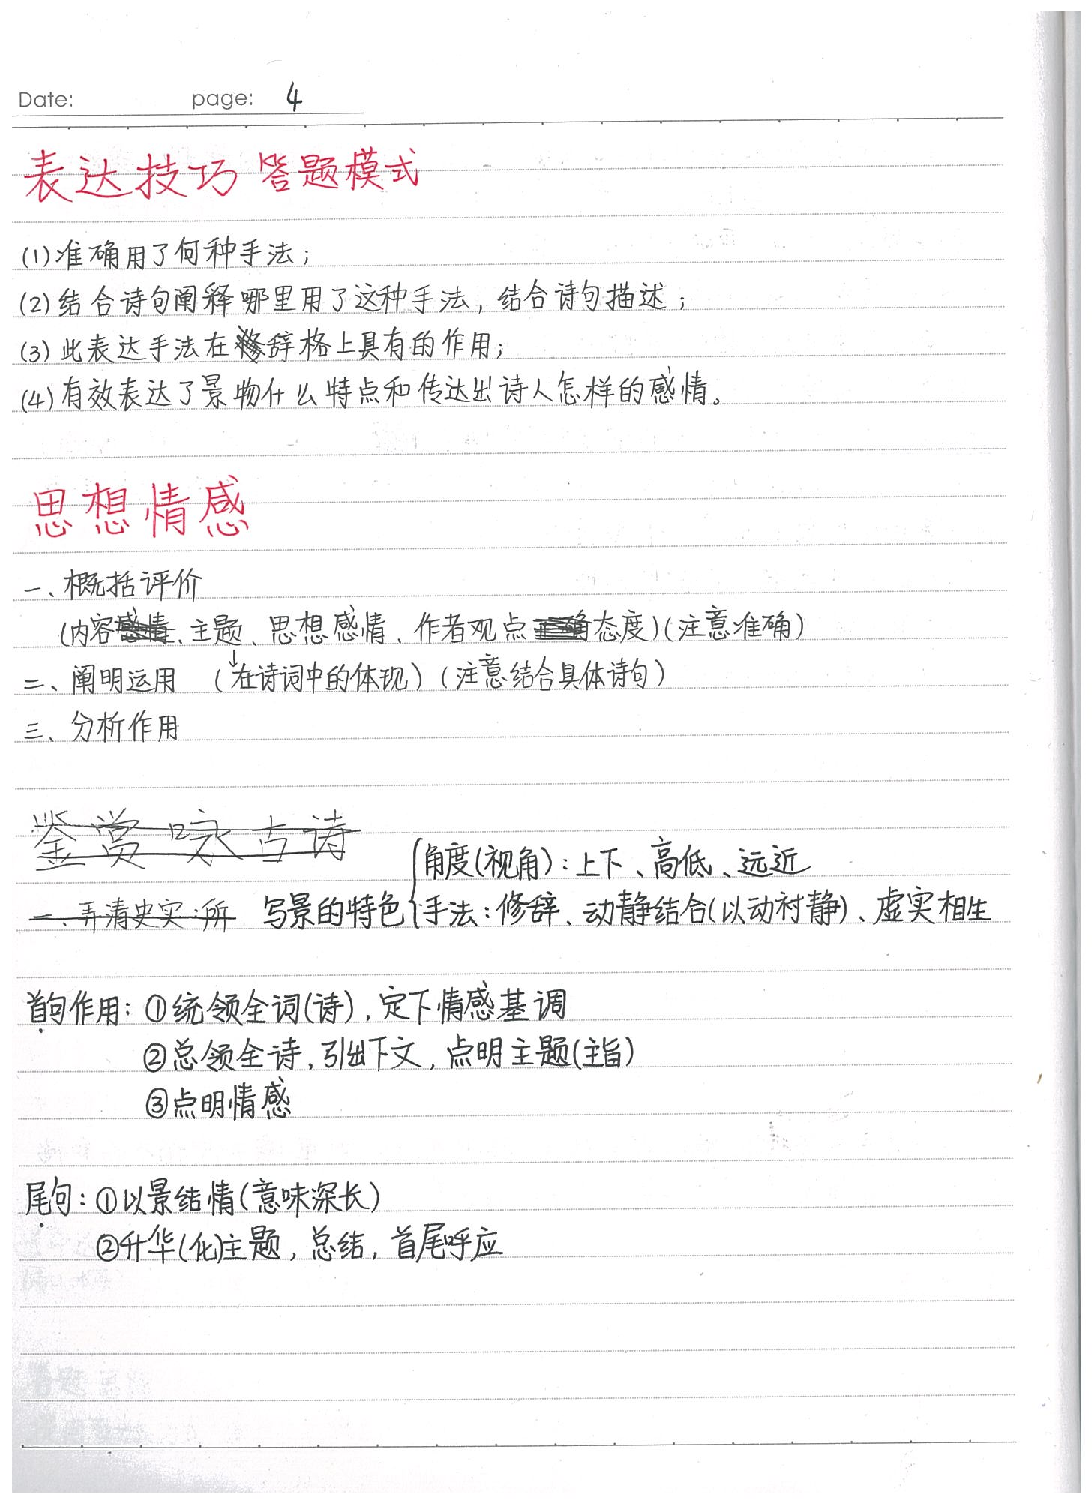 Date: page: 4
表达技巧 答题模式
(1)准确用了何种手法;
(2)结合诗句阐释哪里用了这种手法,结合诗句描述;
(3)此表达手法在修辞格上具有的作用;
(4)有效表达了景物什么特点和传达出诗人怎样的感情。
思想情感
一、概括评价
(内容、主题、思想感情、作者观点态度)(注意准确)
二、阐明运用 (在诗词中的体现)(注意结合具体诗句)
三、分析作用
鉴赏咏古诗
角度(视角):上下、高低、远近
一、弄清史实:所 写景的特色 手法:修辞、动静结合(以动衬静)、虚实相生
首句作用:①统领全词(诗),定下情感基调
②总领全诗,引出下文,点明主题(主旨)
③点明情感
尾句:①以景结情(意味深长)
②升华(化)主题,总结,首尾呼应